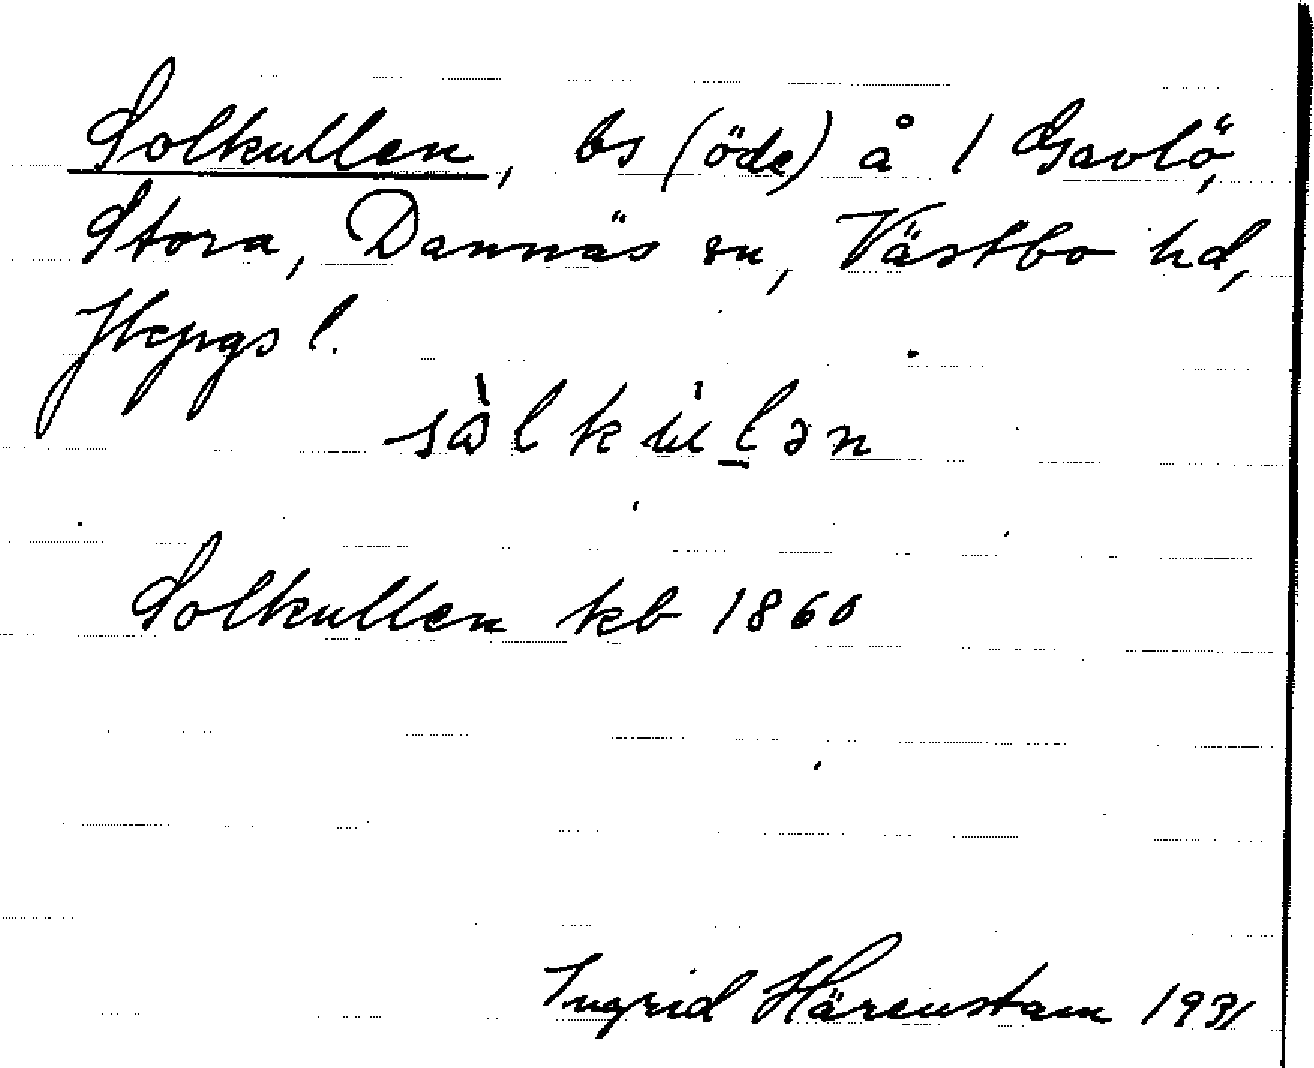 Solkullen, bs (öde) å 1 Gavlö,
Stora, Dannäs sn, Västbo hd,
Jkpgs l.
Solkullen kb 1860
Ingrid Härenstam 1931